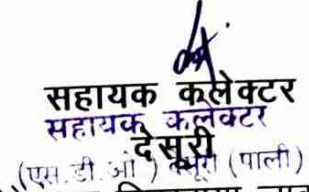 सहायक कलेक्टर
सहायक कलेक्टर
देसूरी
(एस.डी.ओ) देसूरी (पाली)